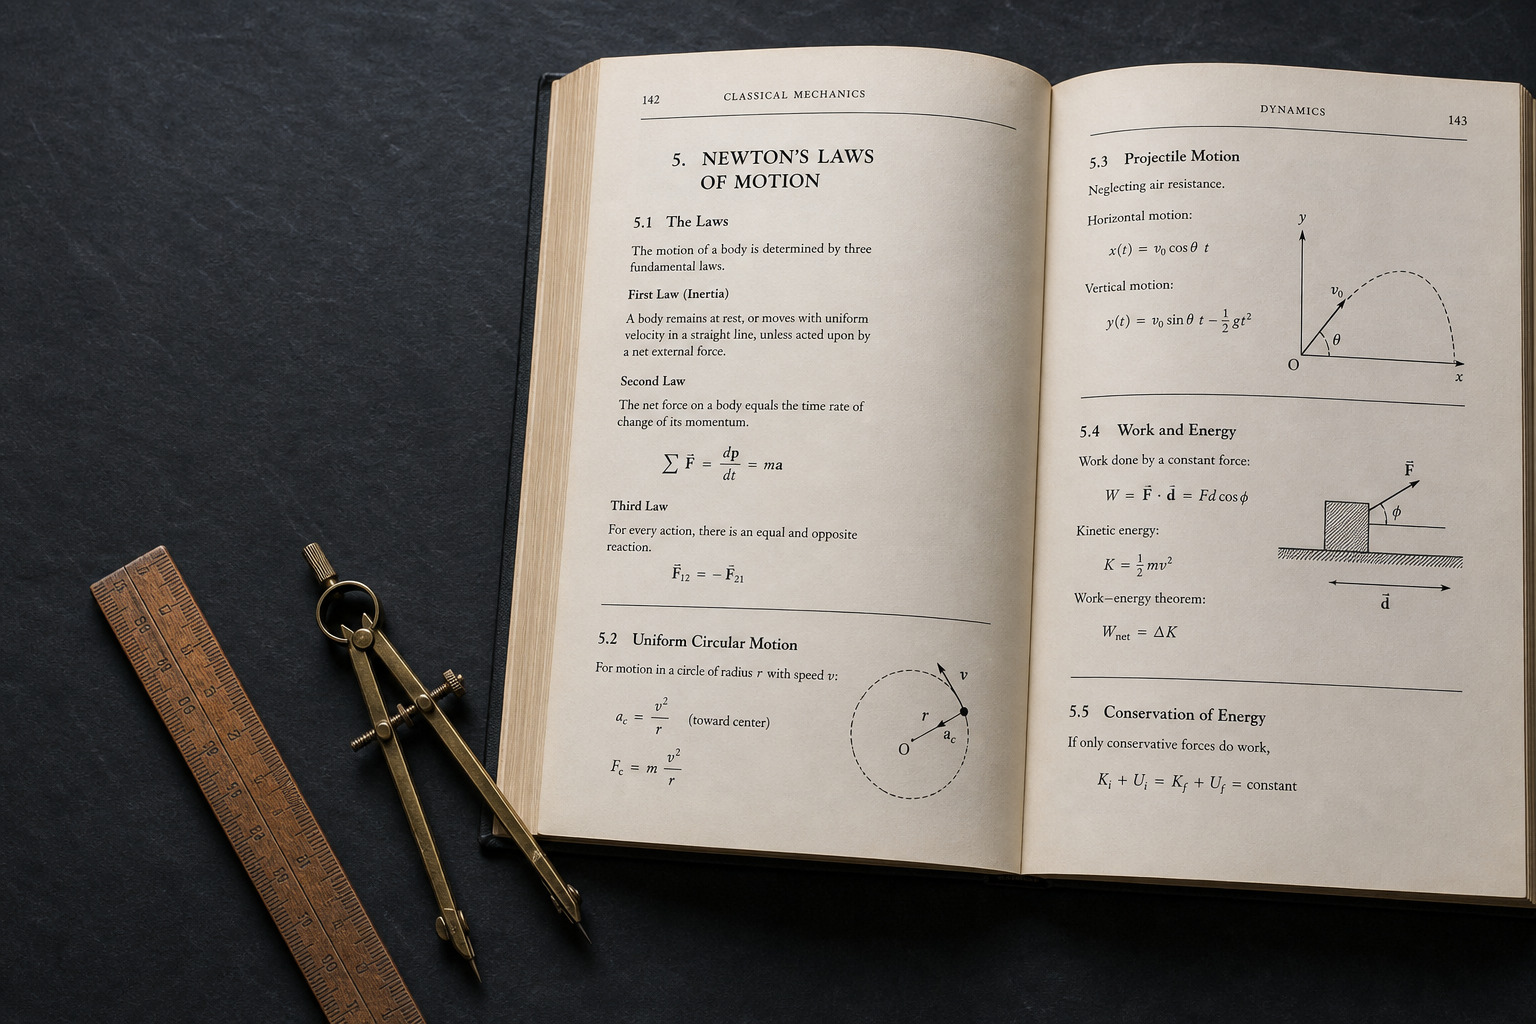 142
CLASSICAL MECHANICS
5. NEWTON'S LAWS
OF MOTION
5.1 The Laws
The motion of a body is determined by three
fundamental laws.
First Law (Inertia)
A body remains at rest, or moves with uniform
velocity in a straight line, unless acted upon by
a net external force.
Second Law
The net force on a body equals the time rate of
change of its momentum.
∑ F⃗ = dp/dt = ma
Third Law
For every action, there is an equal and opposite
reaction.
F⃗₁₂ = − F⃗₂₁
5.2 Uniform Circular Motion
For motion in a circle of radius r with speed v:
a_c = v²/r (toward center)
F_c = m v²/r
v
r
a_c
O
DYNAMICS
143
5.3 Projectile Motion
Neglecting air resistance.
Horizontal motion:
x(t) = v₀ cos θ t
Vertical motion:
y(t) = v₀ sin θ t − 1/2 gt²
y
v₀
θ
O
x
5.4 Work and Energy
Work done by a constant force:
W = F⃗ · d⃗ = Fd cos ϕ
Kinetic energy:
K = 1/2 mv²
Work–energy theorem:
W_net = ΔK
F⃗
ϕ
d⃗
5.5 Conservation of Energy
If only conservative forces do work,
K_i + U_i = K_f + U_f = constant